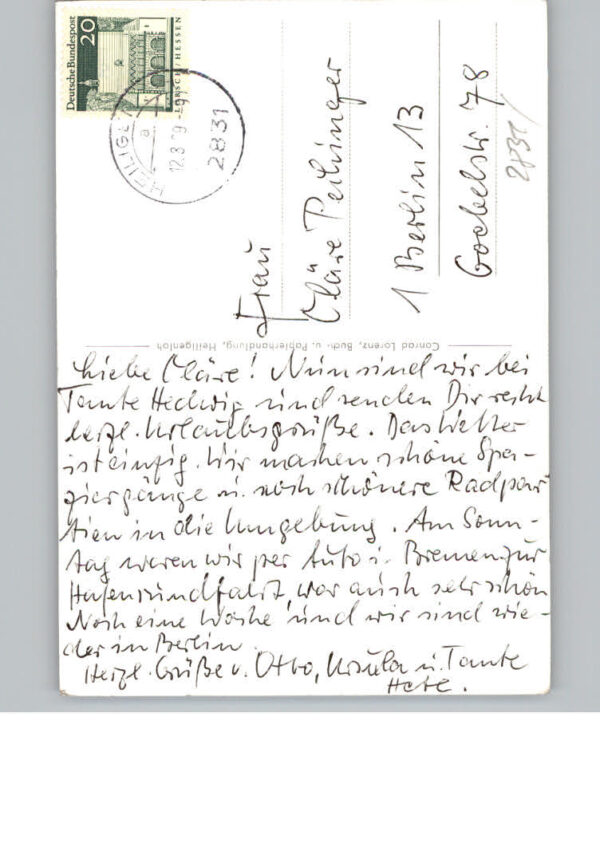 Liebe Cläre! Nun sind wir bei
Tante Hedwig und senden Dir recht
herzl. Urlaubsgrüße. Das Wetter
ist einzig. Wir machen schöne Spa-
ziergänge u. noch schönere Radpar
tien in die Umgebung. Am Sonn-
tag waren wir per Auto i. Bremen zur
Hafenrundfahrt, war auch sehr schön
Noch eine Woche und wir sind wie-
der in Berlin.
Herzl. Grüße v. Otto, Ursula u. Tante
Hete.
Frau
Cläre
1 Berlin 13
Goebelstr. 78
2831
Deutsche Bundespost
20
LORSCH/HESSEN
2831
12.8.69
a
Conrad Lorenz, Buch- u. Papierhandlung, Heiligenloh